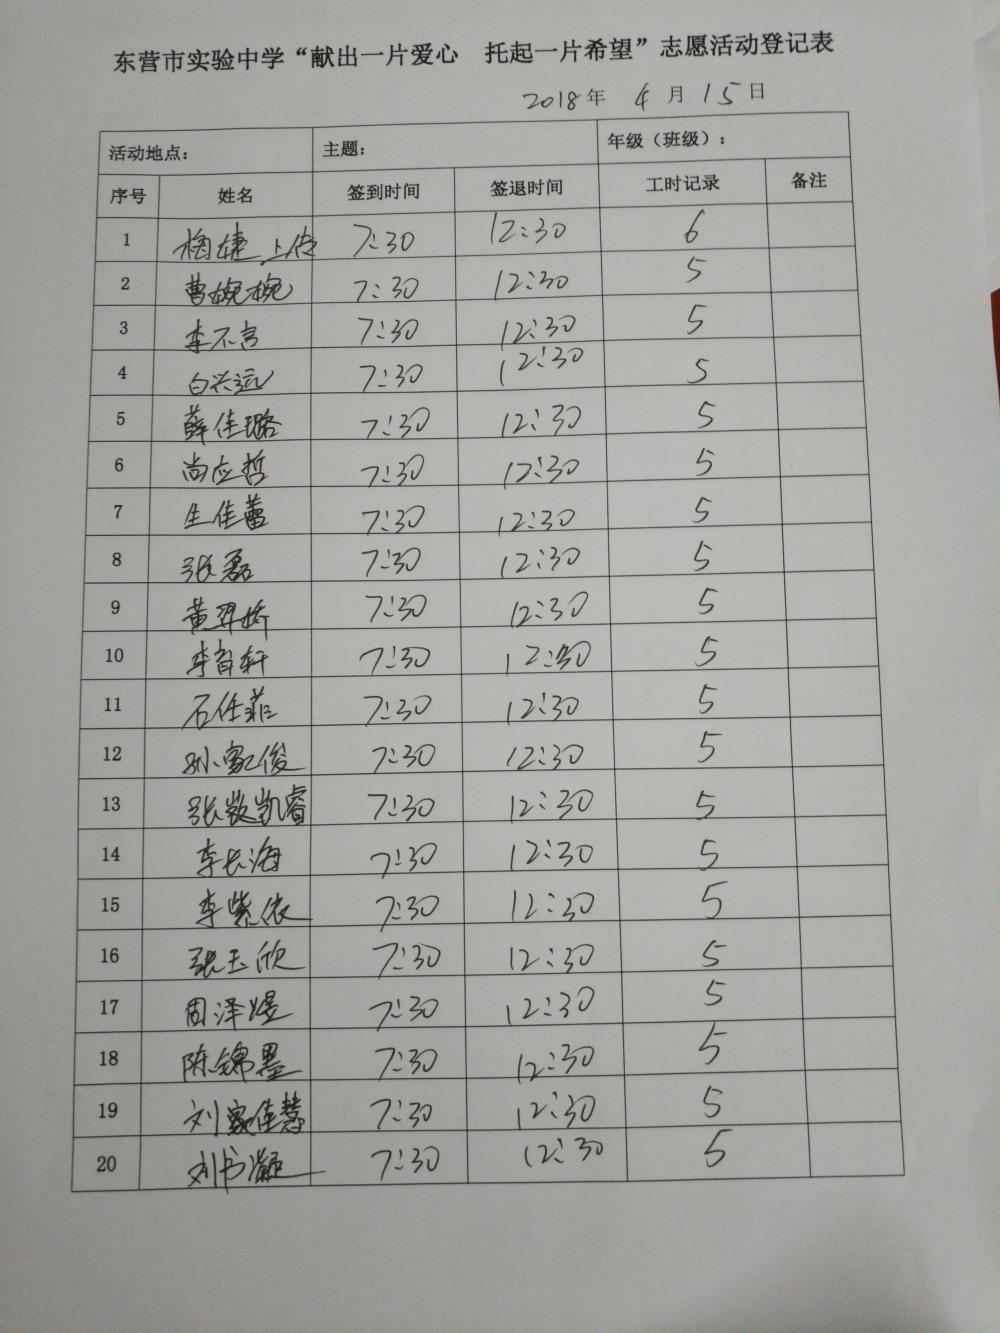 东营市实验中学“献出一片爱心 托起一片希望”志愿活动登记表
2018年 4月15日
活动地点: 主题: 年级(班级):
序号 姓名 签到时间 签退时间 工时记录 备注
1 7:30 12:30 6
2 曹婉婉 7:30 12:30 5
3 李不言 7:30 12:30 5
4 白兴远 7:30 12:30 5
5 薛佳璐 7:30 12:30 5
6 尚应哲 7:30 12:30 5
7 生佳蕾 7:30 12:30 5
8 张磊 7:30 12:30 5
9 黄羿 7:30 12:30 5
10 李 轩 7:30 12:30 5
11 石任菲 7:30 12:30 5
12 孙家俊 7:30 12:30 5
13 张 凯睿 7:30 12:30 5
14 李长海 7:30 12:30 5
15 李紫依 7:30 12:30 5
16 张玉欣 7:30 12:30 5
17 周泽煜 7:30 12:30 5
18 陈锦墨 7:30 12:30 5
19 刘家佳慧 7:30 12:30 5
20 刘书凝 7:30 12:30 5